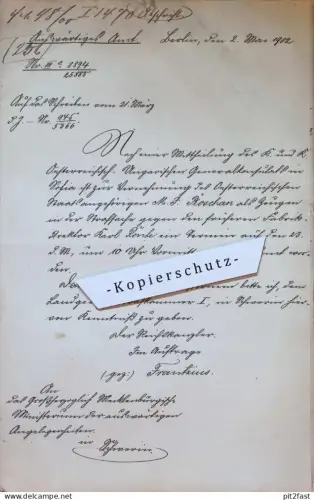 I 1470 Abschrift
Auswärtiges Amt. Berlin, den 2. Mai 1902
Nr. III a 8894
25885
Auf das Schreiben vom 21. März
Nach einer Mittheilung des K. und K.
Oesterreichisch-Ungarischen Generalkonsulats in
Sofia ist zur Vernehmung des Oesterreichischen
Staatsangehörigen M. F. als Zeugen
in der Strafsache gegen den früheren Fabrik-
direktor Karl ein Termin auf den 23.
d. M. um 10 Uhr Vormitt
den.
-Kopierschutz-
bitte ich, dem
Landge kammer I, in Schwerin hier-
von Kenntniß zu geben.
Der Reichskanzler.
Im Auftrage
(gez:) Frantzius.
An
das Großherzoglich Mecklenburgische
Ministerium der auswärtigen
Angelegenheiten.
in Schwerin
www.delcampe.net
pit2fast